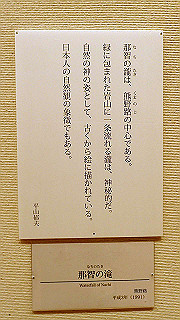 那智の滝は、熊野路の中心である。
緑に包まれた青山に一条流れる滝は、神秘的だ。
自然の神の姿として、古くから絵に描かれている。
日本人の自然観の象徴でもある。
平山郁夫
なちのたき
那智の滝
Waterfall of Nachi
熊野路
平成3年（1991）